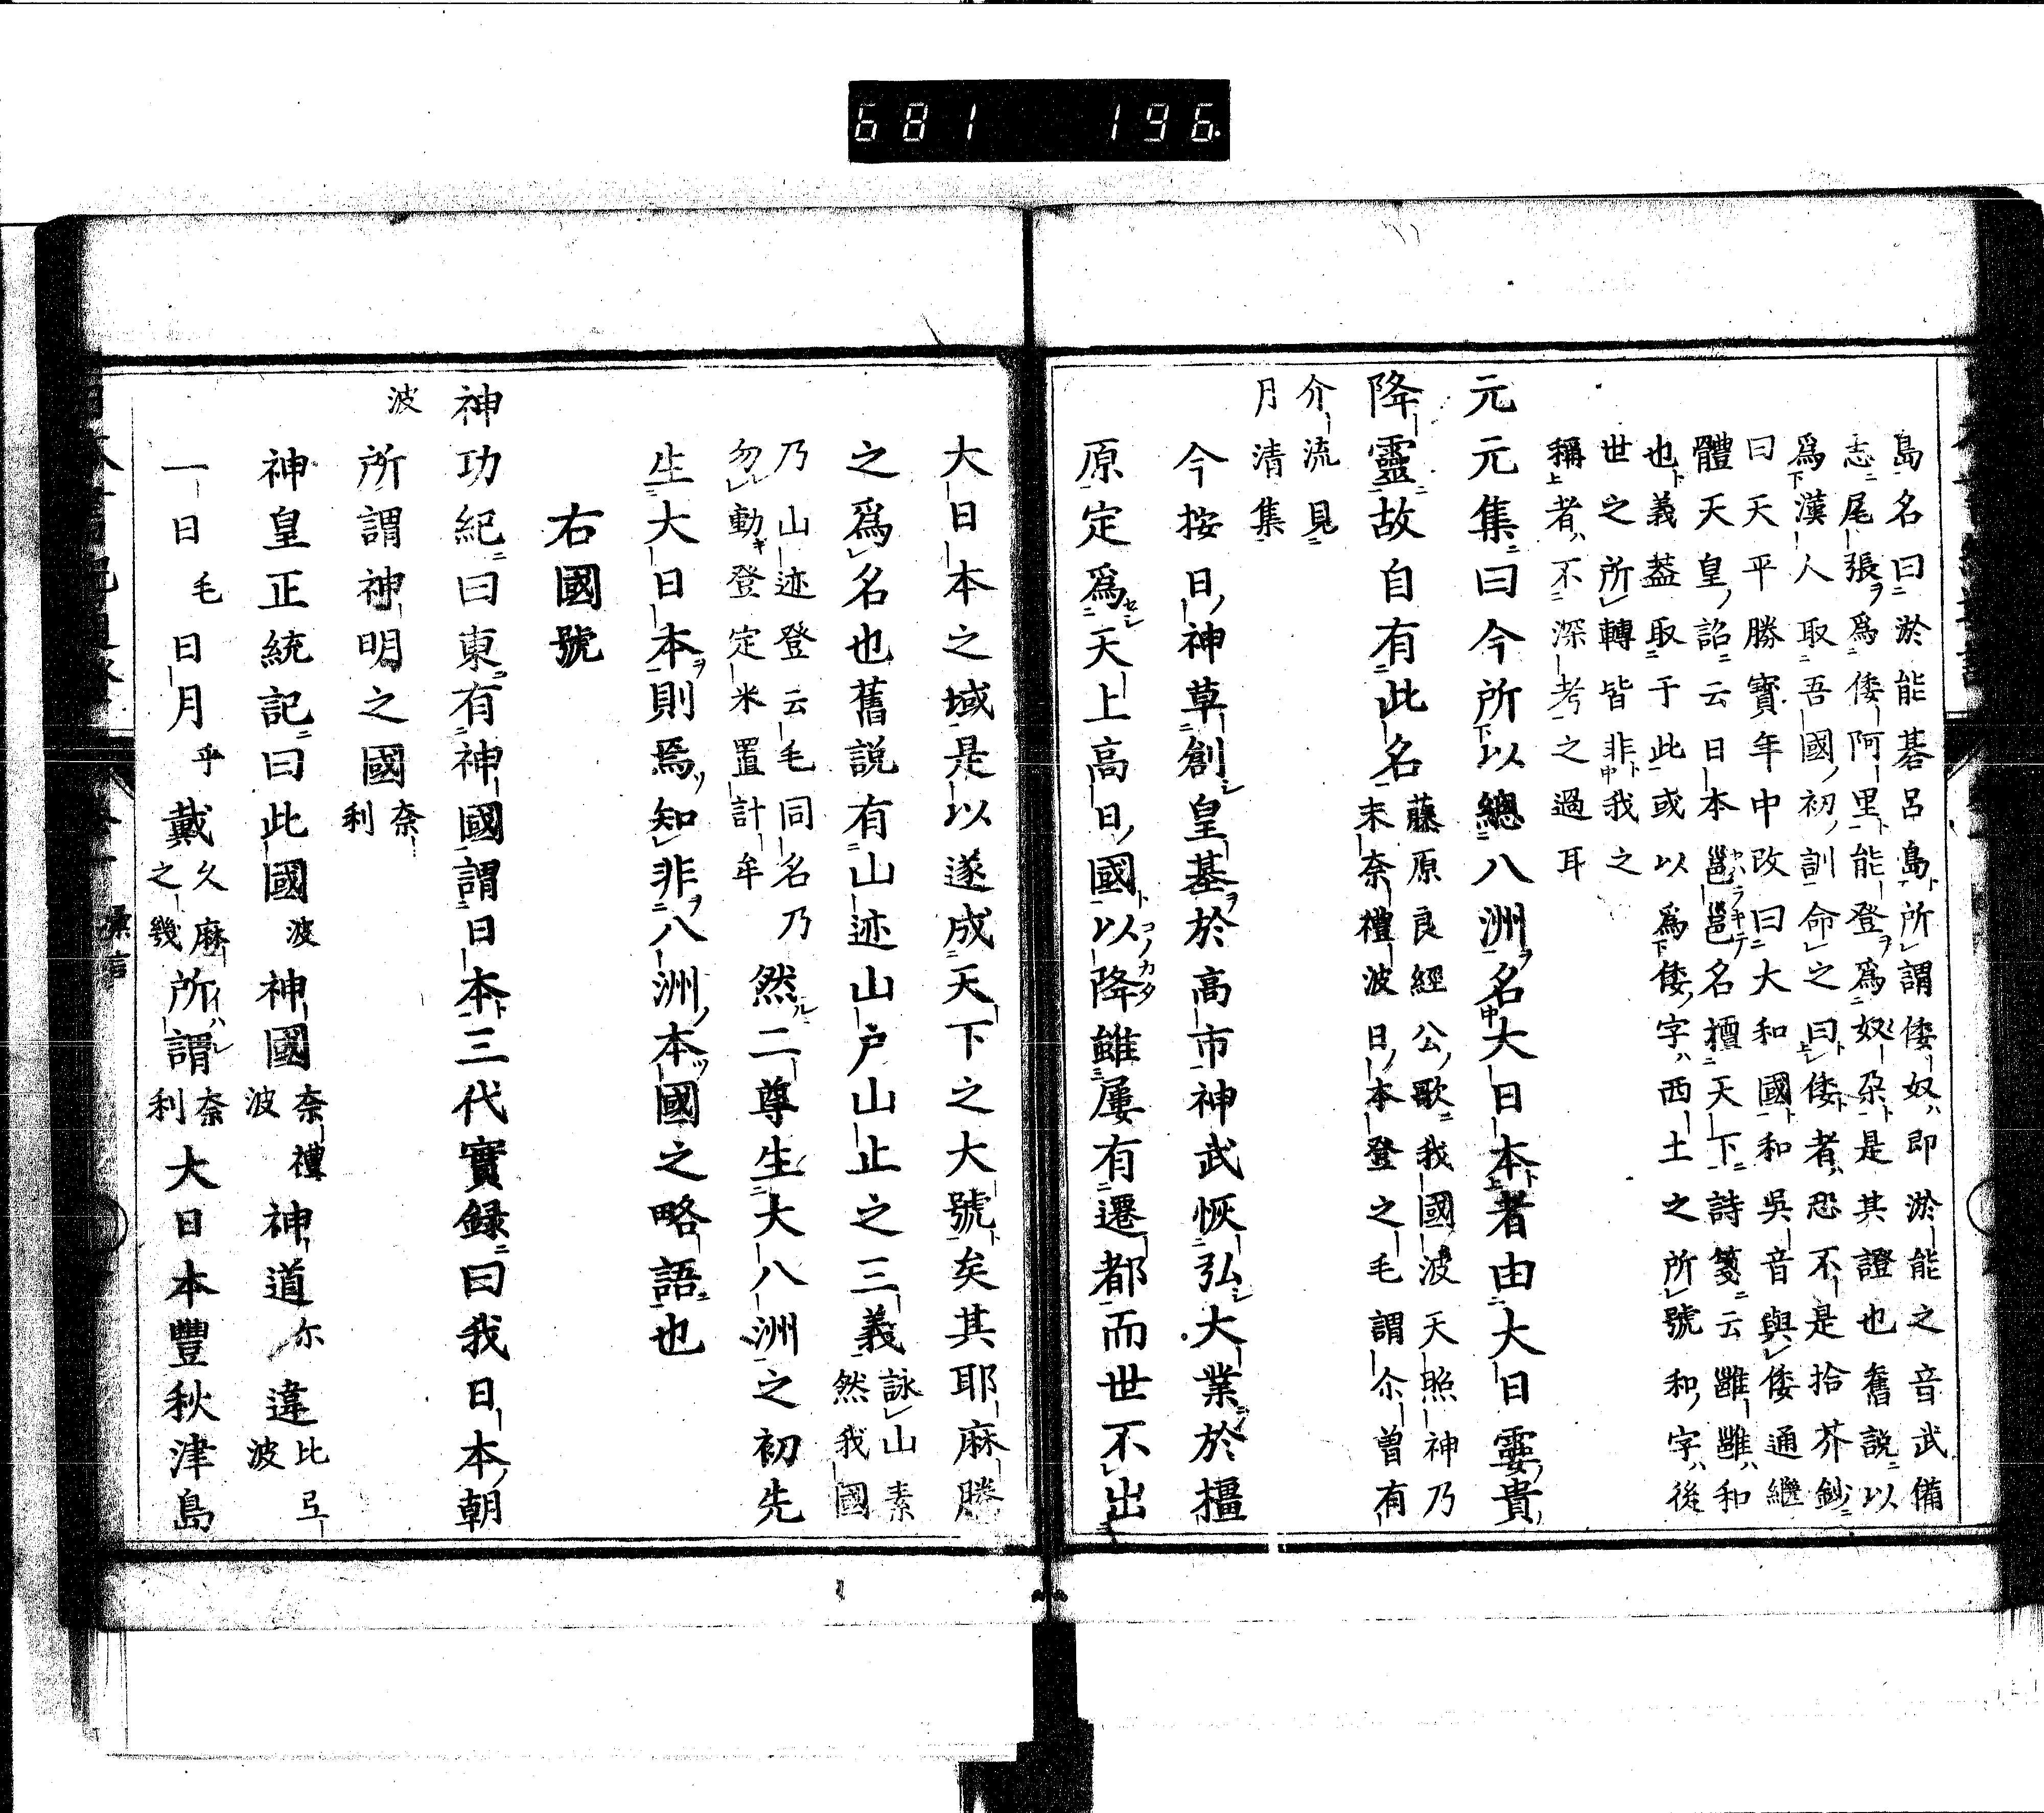 681 196
島名曰淤能碁呂島所謂倭奴即淤能之音武備
志尾張爲倭阿里能登爲奴朶是其證也舊說以
爲漢人取吾國初訓命之曰倭者恐不是拾芥鈔
曰天平勝寶年中改曰大和國和吳音與倭通繼
體天皇詔云日本邕邕名擅天下詩箋云雝雝和
也義蓋取于此或以爲倭字西土之所號和字後
世之所轉皆非我之
稱者不深考之過耳
元元集曰今所以總八洲名大日本者由大日孁貴
降靈故自有此名
藤原良經公歌我國波天照神乃
末奈禮波日本登之毛謂尒曽有
介流見
月清集
今按日神草創皇基於高市神武恢弘大業於橿
原定爲天上高日國以降雖屢有遷都而世不出
大日本之域是以遂成天下之大號矣其耶麻騰
之爲名也舊説有山迹山戸山止之三義
詠山素
然我國
乃山迹登云毛同名乃
勿動登定米置計牟
然二尊生大八洲之初先
生大日本則焉知非八洲本國之略語也
右國號
神功紀曰東有神國謂日本三代實録曰我日本朝
所謂神明之國
奈利
波
神皇正統記曰此國波神國奈禮波神道尓違比弖波
一日毛日月乎戴久麻之幾所謂奈利大日本豐秋津島